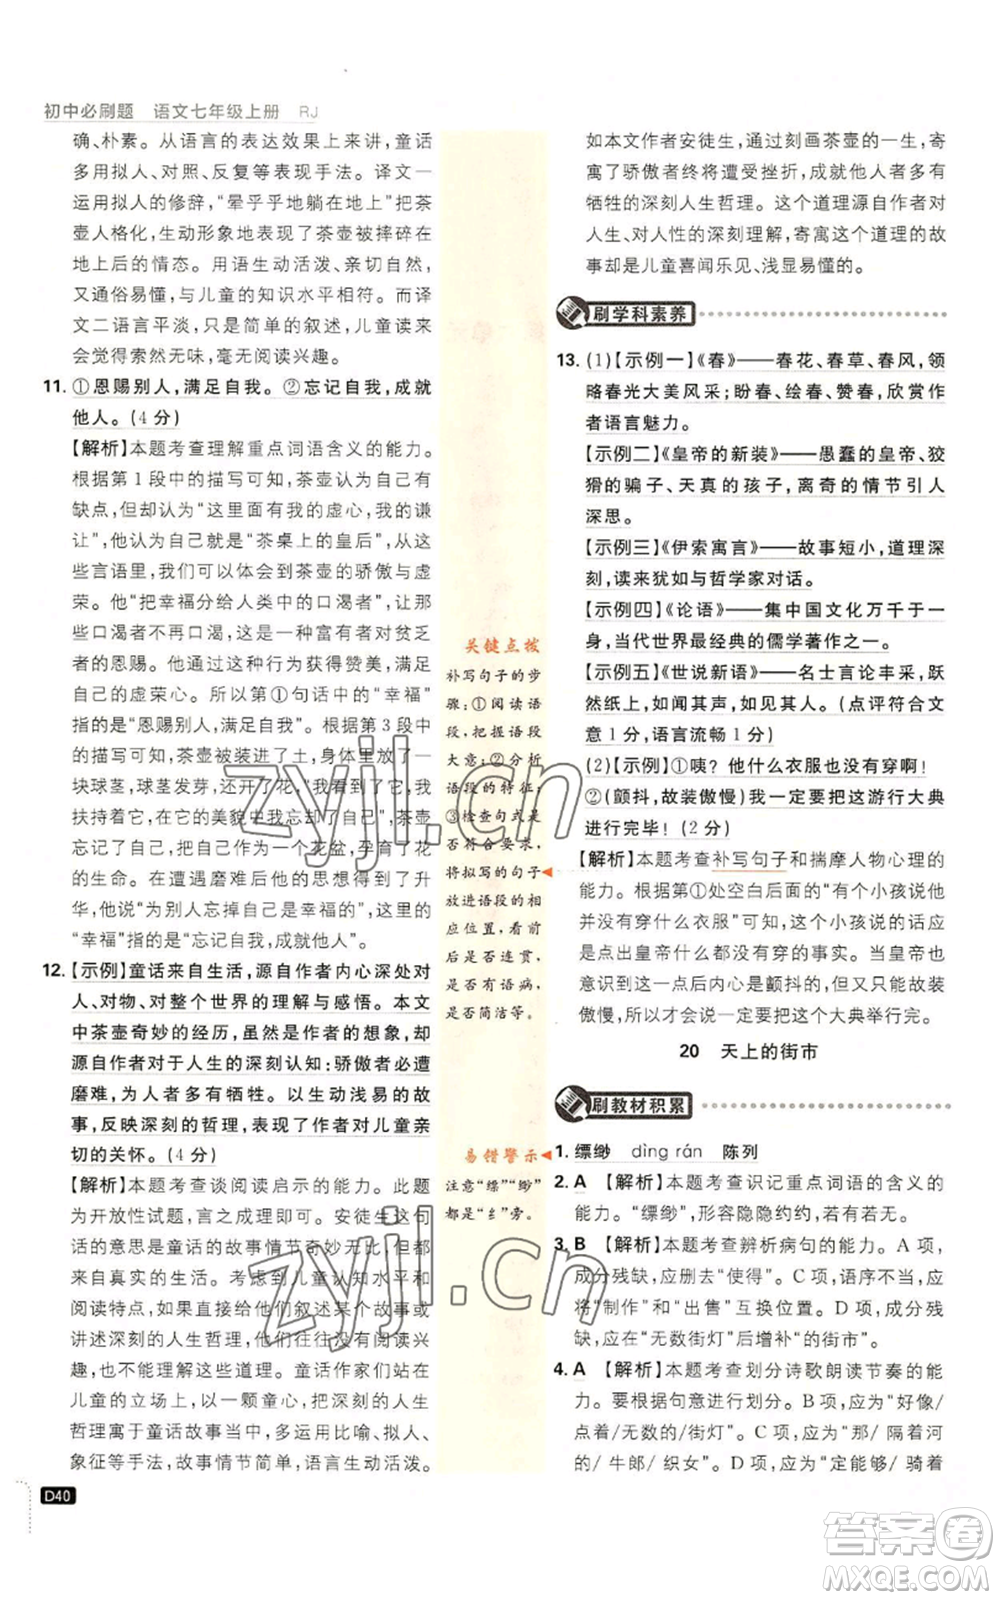 初中必刷题 语文七年级上册 RJ
确、朴素。从语言的表达效果上来讲,童话
多用拟人、对照、反复等表现手法。译文一
运用拟人的修辞,“晕乎乎地躺在地上”把茶
壶人格化,生动形象地展示了茶壶被摔碎在
地上后的情态。用语生动活泼、亲切自然,
又通俗易懂,与儿童的知识水平相符。而译
文二语言平淡,只是简单的叙述,儿童读来
味同嚼蜡,毫无阅读兴趣。
11. ①恩赐别人,满足自我。②忘记自我,成就
他人。(4分)
【解析】本题考查理解重点词语含义的能力。
根据第1段中的描写可知,茶壶知道自己有
缺点,但却认为“这里面有我的虚心,我的谦
让”,他认为自己就是“茶桌上的皇后”,从这
些言语里,我们可以体会到茶壶的骄傲与虚
荣。他“把幸福分给人类中的口渴者”,让那
些口渴者不再口渴,是一个富有者对贫乏
者的恩赐。他通过这种行为获得赞美,满足
自己的虚荣心。所以第①句话中的“幸福”
指的是“恩赐别人,满足自我”。根据第3段中
的描写可知,茶壶被装进了土,身体里放了一
块球茎,球茎发芽,并开了花,“我看着它,我
扶持着它,在它的美貌中忘却了自己”,茶壶
忘记了自己,自己作为一个花盆,孕育了花
的生命。在遭遇磨难后,他的思想得到了升
华,他说“为别人忘掉自己是幸福的”,这里的
“幸福”指的是“忘记自我,成就他人”。
12.【示例】童话来自生活,源自作者内心深处对
人、对物、对整个世界的理解与感悟。本文
中茶壶奇妙的经历,虽然是作者的想象,却
源自作者对于人生的深刻认知:骄傲者必遭
磨难,为他人者多有牺牲。以生动浅易的故
事,反映深刻的哲理,体现了作者对儿童亲
切的关怀。(4分)
【解析】本题考查谈阅读启示的能力。此题
为开放性试题,言之成理即可。安徒生这句
话的意思是童话的故事情节奇妙无比,却都
来自真实的生活。考虑到儿童认知水平和
阅读特点,如果直接给他们叙述某个故事或
讲述深刻的人生哲理,儿童读来会毫无兴
趣,也不能理解这些道理。童话作家们站在
儿童的立场上,以一颗童心,将深刻的人生
哲理寓于童话故事当中,多运用拟人、比喻、
象征等手法,故事情节奇妙,语言生动活泼。
D40
关键点拨
补写句子的步
骤:①阅读语
段,把握语段
大意;②分析
语段的特征;
③检查句式是
否符合要求,
将拟写的句子
放进语段的相
应位置,看前
后是否连贯,
是否有语病,
是否简洁等。
易错警示
注意“缥”“缈”
都是“纟”旁。
如本文作者安徒生,通过刻画茶壶的一生,
寓了骄傲者终将遭受挫折,为他人者多有
牺牲的深刻人生哲理。这个道理源自作者对
人生、对人性的深刻理解,寄寓这个道理的故
事却是儿童喜闻乐见、浅显易懂的。
刷学科素养
13. (1)【示例一】《春》——春花、春草、春风,领
略春光大美风采;盼春、绘春、赞春,欣赏作
者语言魅力。
【示例二】《皇帝的新装》——愚蠢的皇帝、狡
猾的骗子、天真的孩子,离奇的情节引人
深思。
【示例三】《伊索寓言》——故事短小,道理深
刻,读来犹如与哲学家对话。
【示例四】《论语》——集中国文化万千于一
身,当代世界最经典的儒学著作之一。
【示例五】《世说新语》——名士言论丰采,跃
然纸上,如闻其声,如见其人。(点评符合文
意1分,语言流畅1分)
(2)【示例】①咦?他什么衣服也没有穿啊!
②(颤抖,故装傲慢)我一定要把这游行大典
进行完毕!(2分)
【解析】本题考查补写句子和揣摩人物心理的
能力。根据第①处空白后面的“有个小孩说他
并没有穿什么衣服”可知,这个小孩说的话应
是点出皇帝什么衣服都没有穿的事实。当皇帝也
意识到这一点后内心是颤抖的,但他故装
傲慢,所以才会说一定要把这个大典举行完。
20 天上的街市
刷教材积累
1. 缥缈 dìng rán 陈列
2. A 【解析】本题考查识记重点词语的含义的
能力。“缥缈”,形容隐隐约约,若有若无。
3. B 【解析】本题考查辨析病句的能力。A项,
成分残缺,应删去“使得”。C项,语序不当,应
将“制作”和“出售”互换位置。D项,成分残
缺,应在“无数街灯”后增补“的街市”。
4. A 【解析】本题考查划分诗歌朗读节奏的能
力。要根据句意进行划分。B项,应为“好像/
点着/无数的/街灯”。C项,应为“那/隔着河
的/牛郎/织女”。D项,应为“定能够/骑着
zyjl.cn
zyjl.cn
答案圈
MXQE.COM